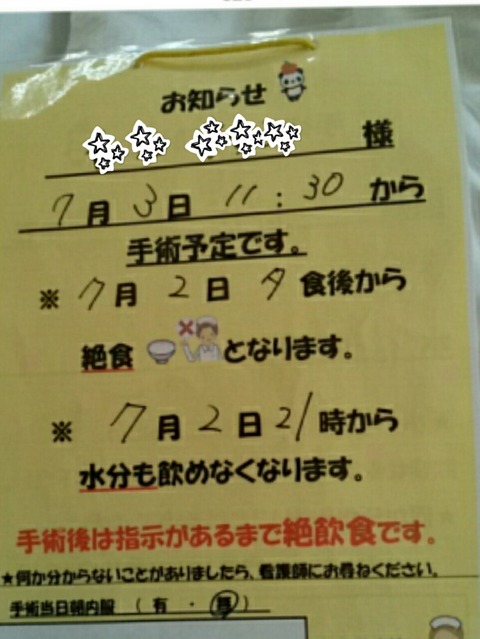 お知らせ
様
7月3日 11:30から
手術予定です。
※ 7月2日 夕 食後から
絶食となります。
※ 7月2日21時から
水分も飲めなくなります。
手術後は指示があるまで絶飲食です。
★何か分からないことがありましたら、看護師にお尋ねください。
手術当日朝内服 (有・無)